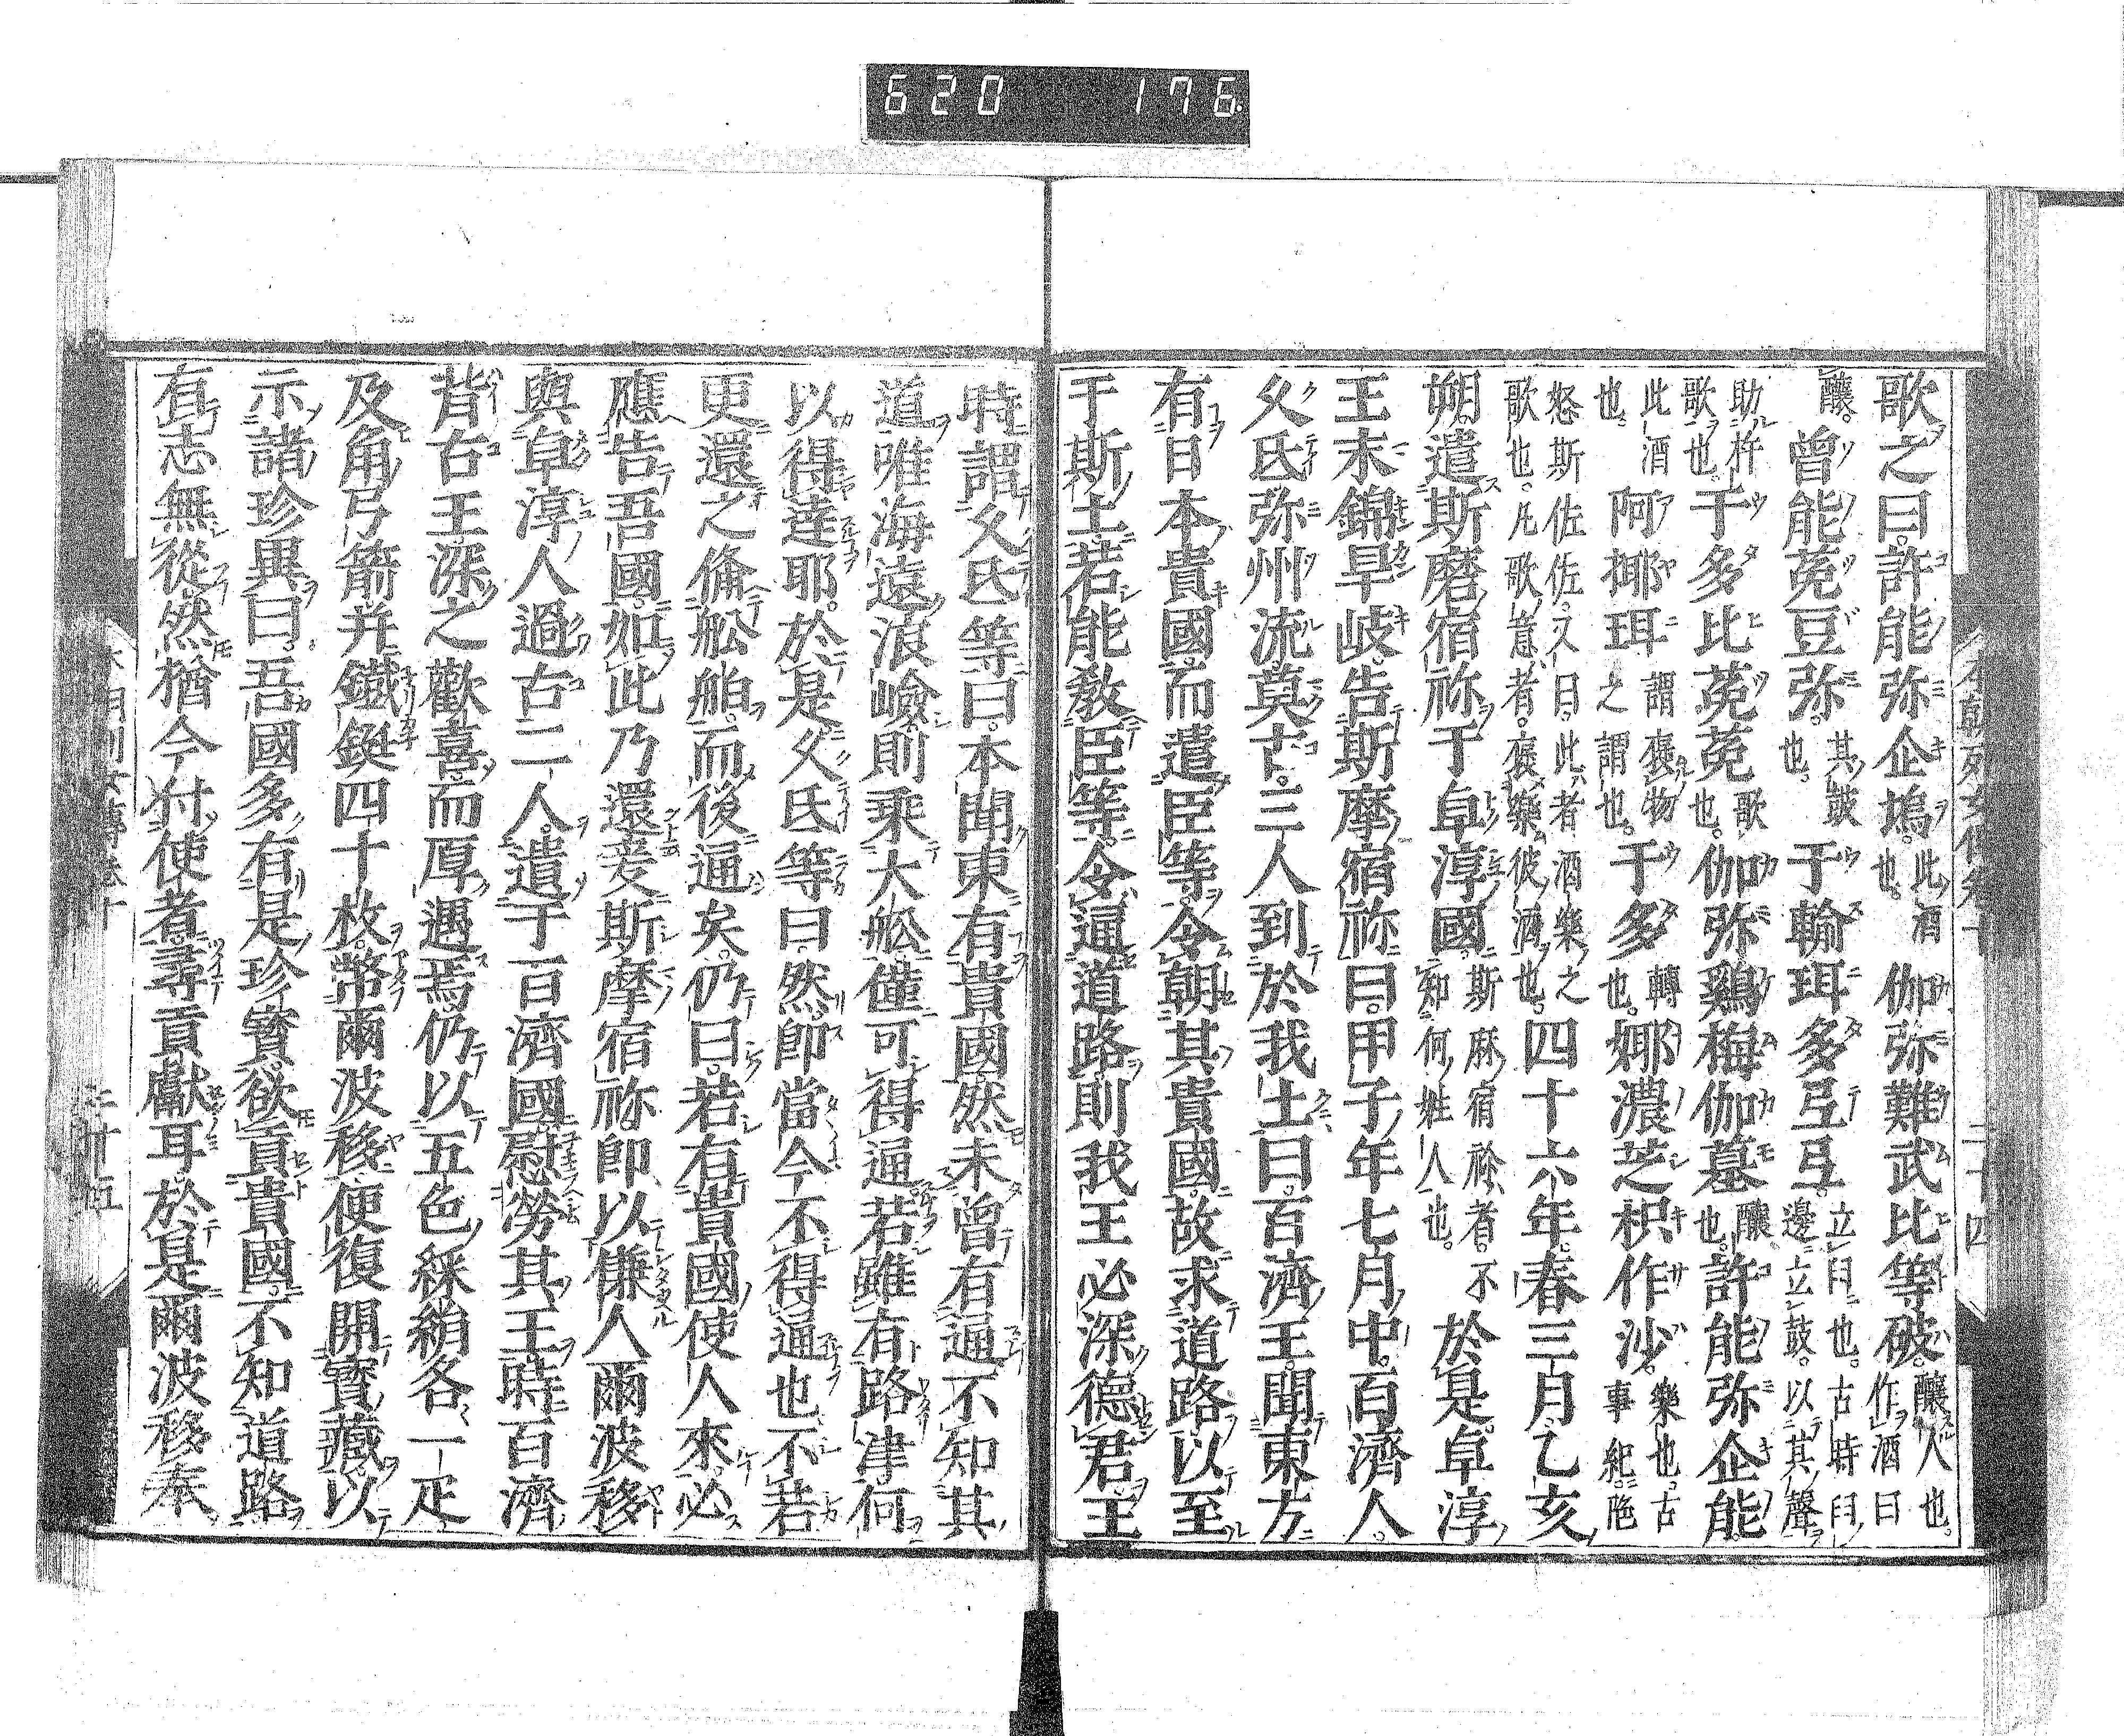 620 176
歌之曰許能弥企塢此酒也伽弥難武比等破釀人也作酒曰
釀曾能菟豆弥其鼓也于輸珥多弖弖立臼也古時臼邊立鼓以其聲
助杵歌也于多比菟菟歌也伽弥鷄梅伽墓釀也許能弥企能
此酒也阿椰珥謂褒物之謂也于多轉也娜濃芝枳作沙樂也古事紀
怒斯佐佐又曰此者酒樂之歌也凡歌意者褒樂彼酒也四十六年春三月乙亥
朔遣斯磨宿祢于卓淳國斯麻宿祢者不知何姓人也於是卓淳
王末錦旱岐告斯摩宿祢曰甲子年七月中百濟人
久氐弥州流莫古三人到於我土曰百濟王聞東方
有日本貴國而遣臣等令朝其貴國故求道路以至
于斯土若能教臣等令通道路則我王必深德君王
時謂久氐等曰本聞東有貴國然未曾有通不知其
道唯海遠浪嶮則乘大舩僅可得通若雖有路津何
以得達耶於是久氐等曰然即當今不得通也不若
更還之備舩舶而後通矣仍曰若有貴國使人來必
應告吾國如此乃還爰斯摩宿祢即以傔人爾波移
與卓淳人過古二人遣于百濟國慰勞其王時百濟
背古王深之歡喜而厚遇焉仍以五色綵絹各一疋
及角弓箭并鐵鋌四十枚幣爾波移便復開寶藏以
示諸珍異曰吾國多有是珍寶欲貢貴國不知道路
有志無從然猶今付使者尋貢獻耳於是爾波移奉